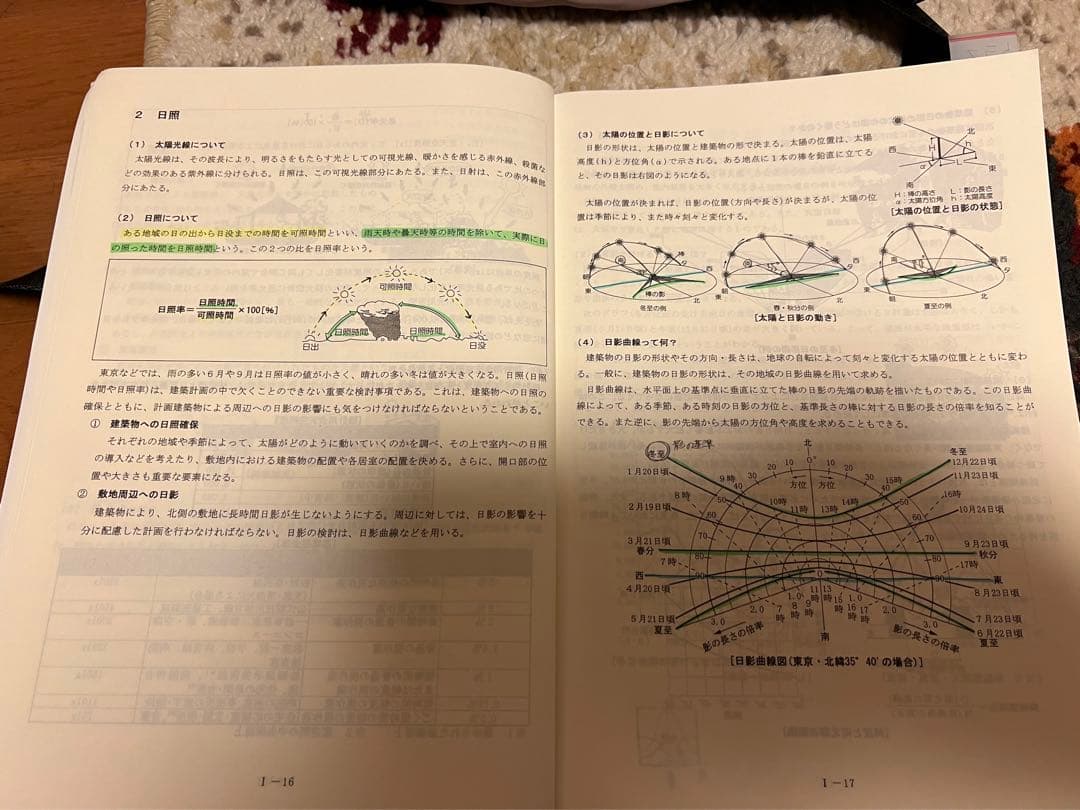 2 日照
(1) 太陽光線について
太陽光線は、その波長により、明るさをもたらす光としての可視光線、暖かさを感じる赤外線、殺菌な
どの効果のある紫外線に分けられる。日照は、この可視光線部分にあたる。また、日射は、この赤外線部
分にあたる。
(2) 日照について
ある地域の日の出から日没までの時間を可照時間といい、雨天時や曇天時等の時間を除いて、実際に日
の照った時間を日照時間という。この2つの比を日照率という。
日照率=日照時間/可照時間×100[%]
可照時間
日照時間
日照時間
日出
日没
東京などでは、雨の多い6月や9月は日照率の値が小さく、晴れの多い冬は値が大きくなる。日照(日照
時間や日照率)は、建築計画の中で欠くことのできない重要な検討事項である。これは、建築物への日照の
確保とともに、計画建築物による周辺への日影の影響にも気をつけなければならないということである。
① 建築物への日照確保
それぞれの地域や季節によって、太陽がどのように動いていくのかを調べ、その上で室内への日照
の導入などを考えたり、敷地内における建築物の配置や各居室の配置を決める。さらに、開口部の位
置や大きさも重要な要素になる。
② 敷地周辺への日影
建築物により、北側の敷地に長時間日影が生じないようにする。周辺に対しては、日影の影響を十
分に配慮した計画を行わなければならない。日影の検討は、日影曲線などを用いる。
I-16
(3) 太陽の位置と日影について
日影の形状は、太陽の位置と建築物の形で決まる。太陽の位置は、太陽
高度(h)と方位角(α)で示される。ある地点に1本の棒を鉛直に立てる
と、その日影は右図のようになる。
太陽の位置が決まれば、日影の位置(方向や長さ)が決まるが、太陽の位
置は季節により、また時々刻々と変化する。
北
西
東
南
H
L
H:棒の高さ L:影の長さ
α:太陽方位角 h:太陽高度
[太陽の位置と日影の状態]
朝 東 南 夕 西 北
棒の影
冬至の例
朝 東 南 夕 西 北
春・秋分の例
朝 東 南 西 夕 北
夏至の例
[太陽と日影の動き]
(4) 日影曲線って何?
建築物の日影の形状やその方向・長さは、地球の自転によって刻々と変化する太陽の位置とともに変わ
る。一般に、建築物の日影の形状は、その地域の日影曲線を用いて求める。
日影曲線は、水平面上の基準点に垂直に立てた棒の日影の先端の軌跡を描いたものである。この日影曲
線によって、ある季節、ある時刻の日影の方位と、基準長さの棒に対する日影の長さの倍率を知ることが
できる。また逆に、影の先端から太陽の方位角や高度を求めることもできる。
冬至 影の基準
北
0°
冬至
1月20日頃
12月22日頃
11月23日頃
2月19日頃
10月24日頃
3月21日頃
春分
9月23日頃
秋分
西
東
4月20日頃
8月23日頃
5月21日頃
夏至
7月23日頃
6月22日頃
夏至
方位 方位
10 20 30 40 50 60 70 80 90
10 20 30 40 50 60 70 80 90
7時 8時 9時 10時 11時 13時 14時 15時 16時 17時
0
1.0 2.0 3.0
1.0 2.0 3.0
7時 8時 9時 11時 13時 15時 16時 17時
影の長さの倍率
影の長さの倍率
南
[日影曲線図(東京・北緯35°40'の場合)]
I-17